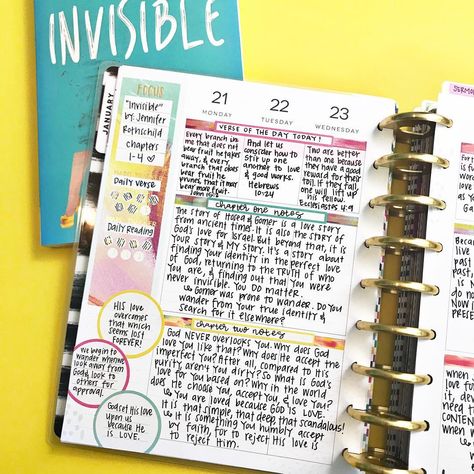 INVISIBLE
JANUARY
FOCUS
"Invisible"
by: Jennifer
Rothschild
chapters
1-4
Daily Verse
Daily Reading
21
MONDAY
22
TUESDAY
23
WEDNESDAY
VERSE OF THE DAY TODAY!
Every branch in
me that does not
bear fruit he takes
away, & every
branch that does
bear fruit he
prunes, that it may
bear more fruit.
And let us
consider how to
stir up one
another to love
& good works.
Hebrews
10:24
Two are better
than one because
they have a good
reward for their
toil. If they fall,
one will lift up
his fellow.
Ecclesiastes 4:9
chapter one notes
The story of Hosea & Gomer is a love story
from ancient time. It is also the story of
God's love for Israel. But beyond that, it is
YOUR STORY & MY STORY. It's a story about
finding your identity in the perfect love
of God, returning to the TRUTH of who
You are, & finding out that you were
never invisible. You DO matter.
Gomer was prone to wander. Do you
wander from your true identity &
search for it elsewhere?
chapter two notes
GOD NEVER OVERLOOKS YOU. Why does God
love you like that? Why does He accept the
imperfect you? After all, compared to His
purity aren't you dirty? So what is God's
love for you based on? Why in the world
does He choose you, accept you, & love you?
You are loved because GOD IS LOVE.
It is that simple, that deep, that scandalous!
It is something you humbly accept
by faith, for to reject His love is
to reject Him.
His love
overcomes
that which
seems lost
FOREVER!
We begin to
wander when we
look away from
God & look to
others for
approval.
God set His love
upon us
because He
is LOVE.
SERMON